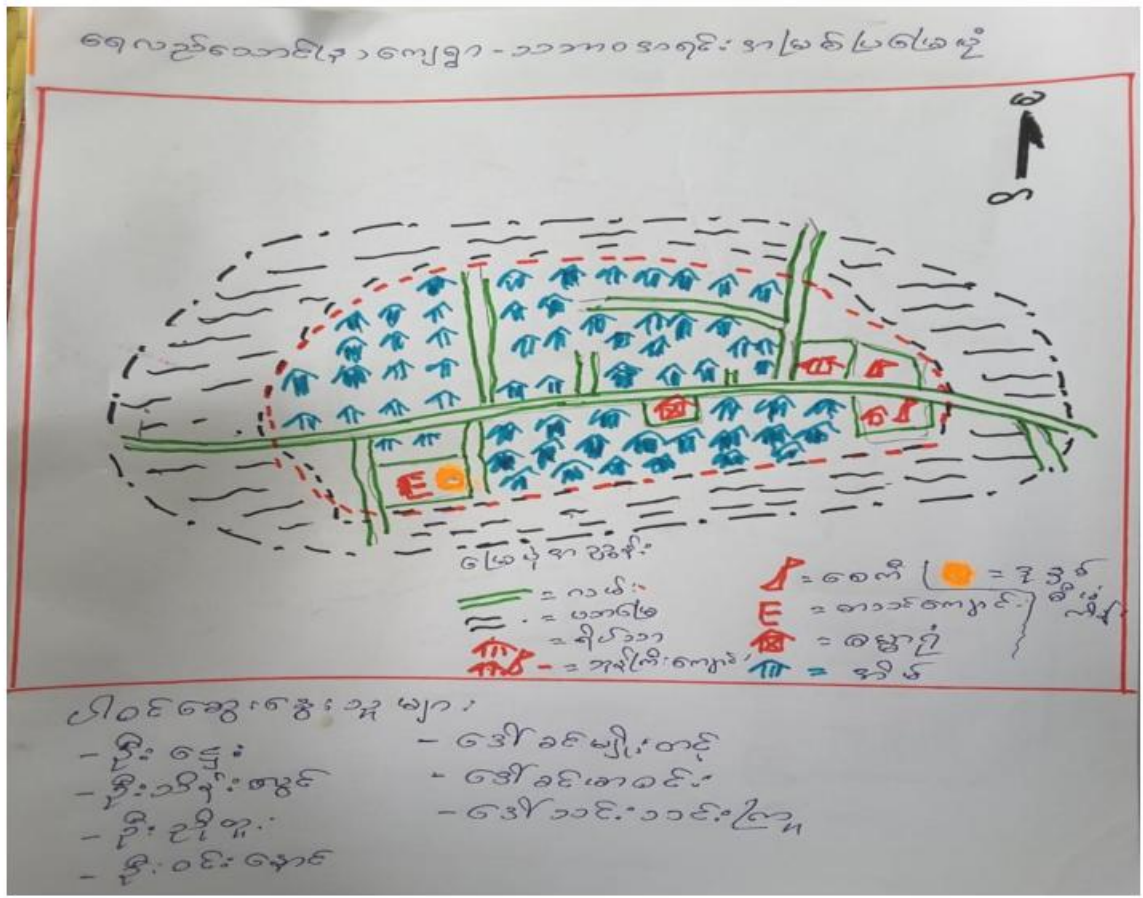 ရေလည်သောင်(န)ကျေးရွာ - သဘာဝအရင်းအမြစ်ပြမြေပုံ
မြေပုံအညွှန်း
= လမ်း
= ယာမြေ
= ရိပ်သာ
- = ဘုန်းကြီးကျောင်း
= စေတီ
E = စာသင်ကျောင်း
= ဓမ္မာရုံ
= အိမ်
E
ပါဝင်ဆွေးနွေးသူများ
- ဦးဌေး
- ဦးသိန်းလွင်
- ဦးညိုထူး
- ဦးဝင်းနောင်
- ဒေါ်ခင်မျိုးတင့်
- ဒေါ်ခင်မာဝင်း
- ဒေါ်သင်းသင်းကြူ